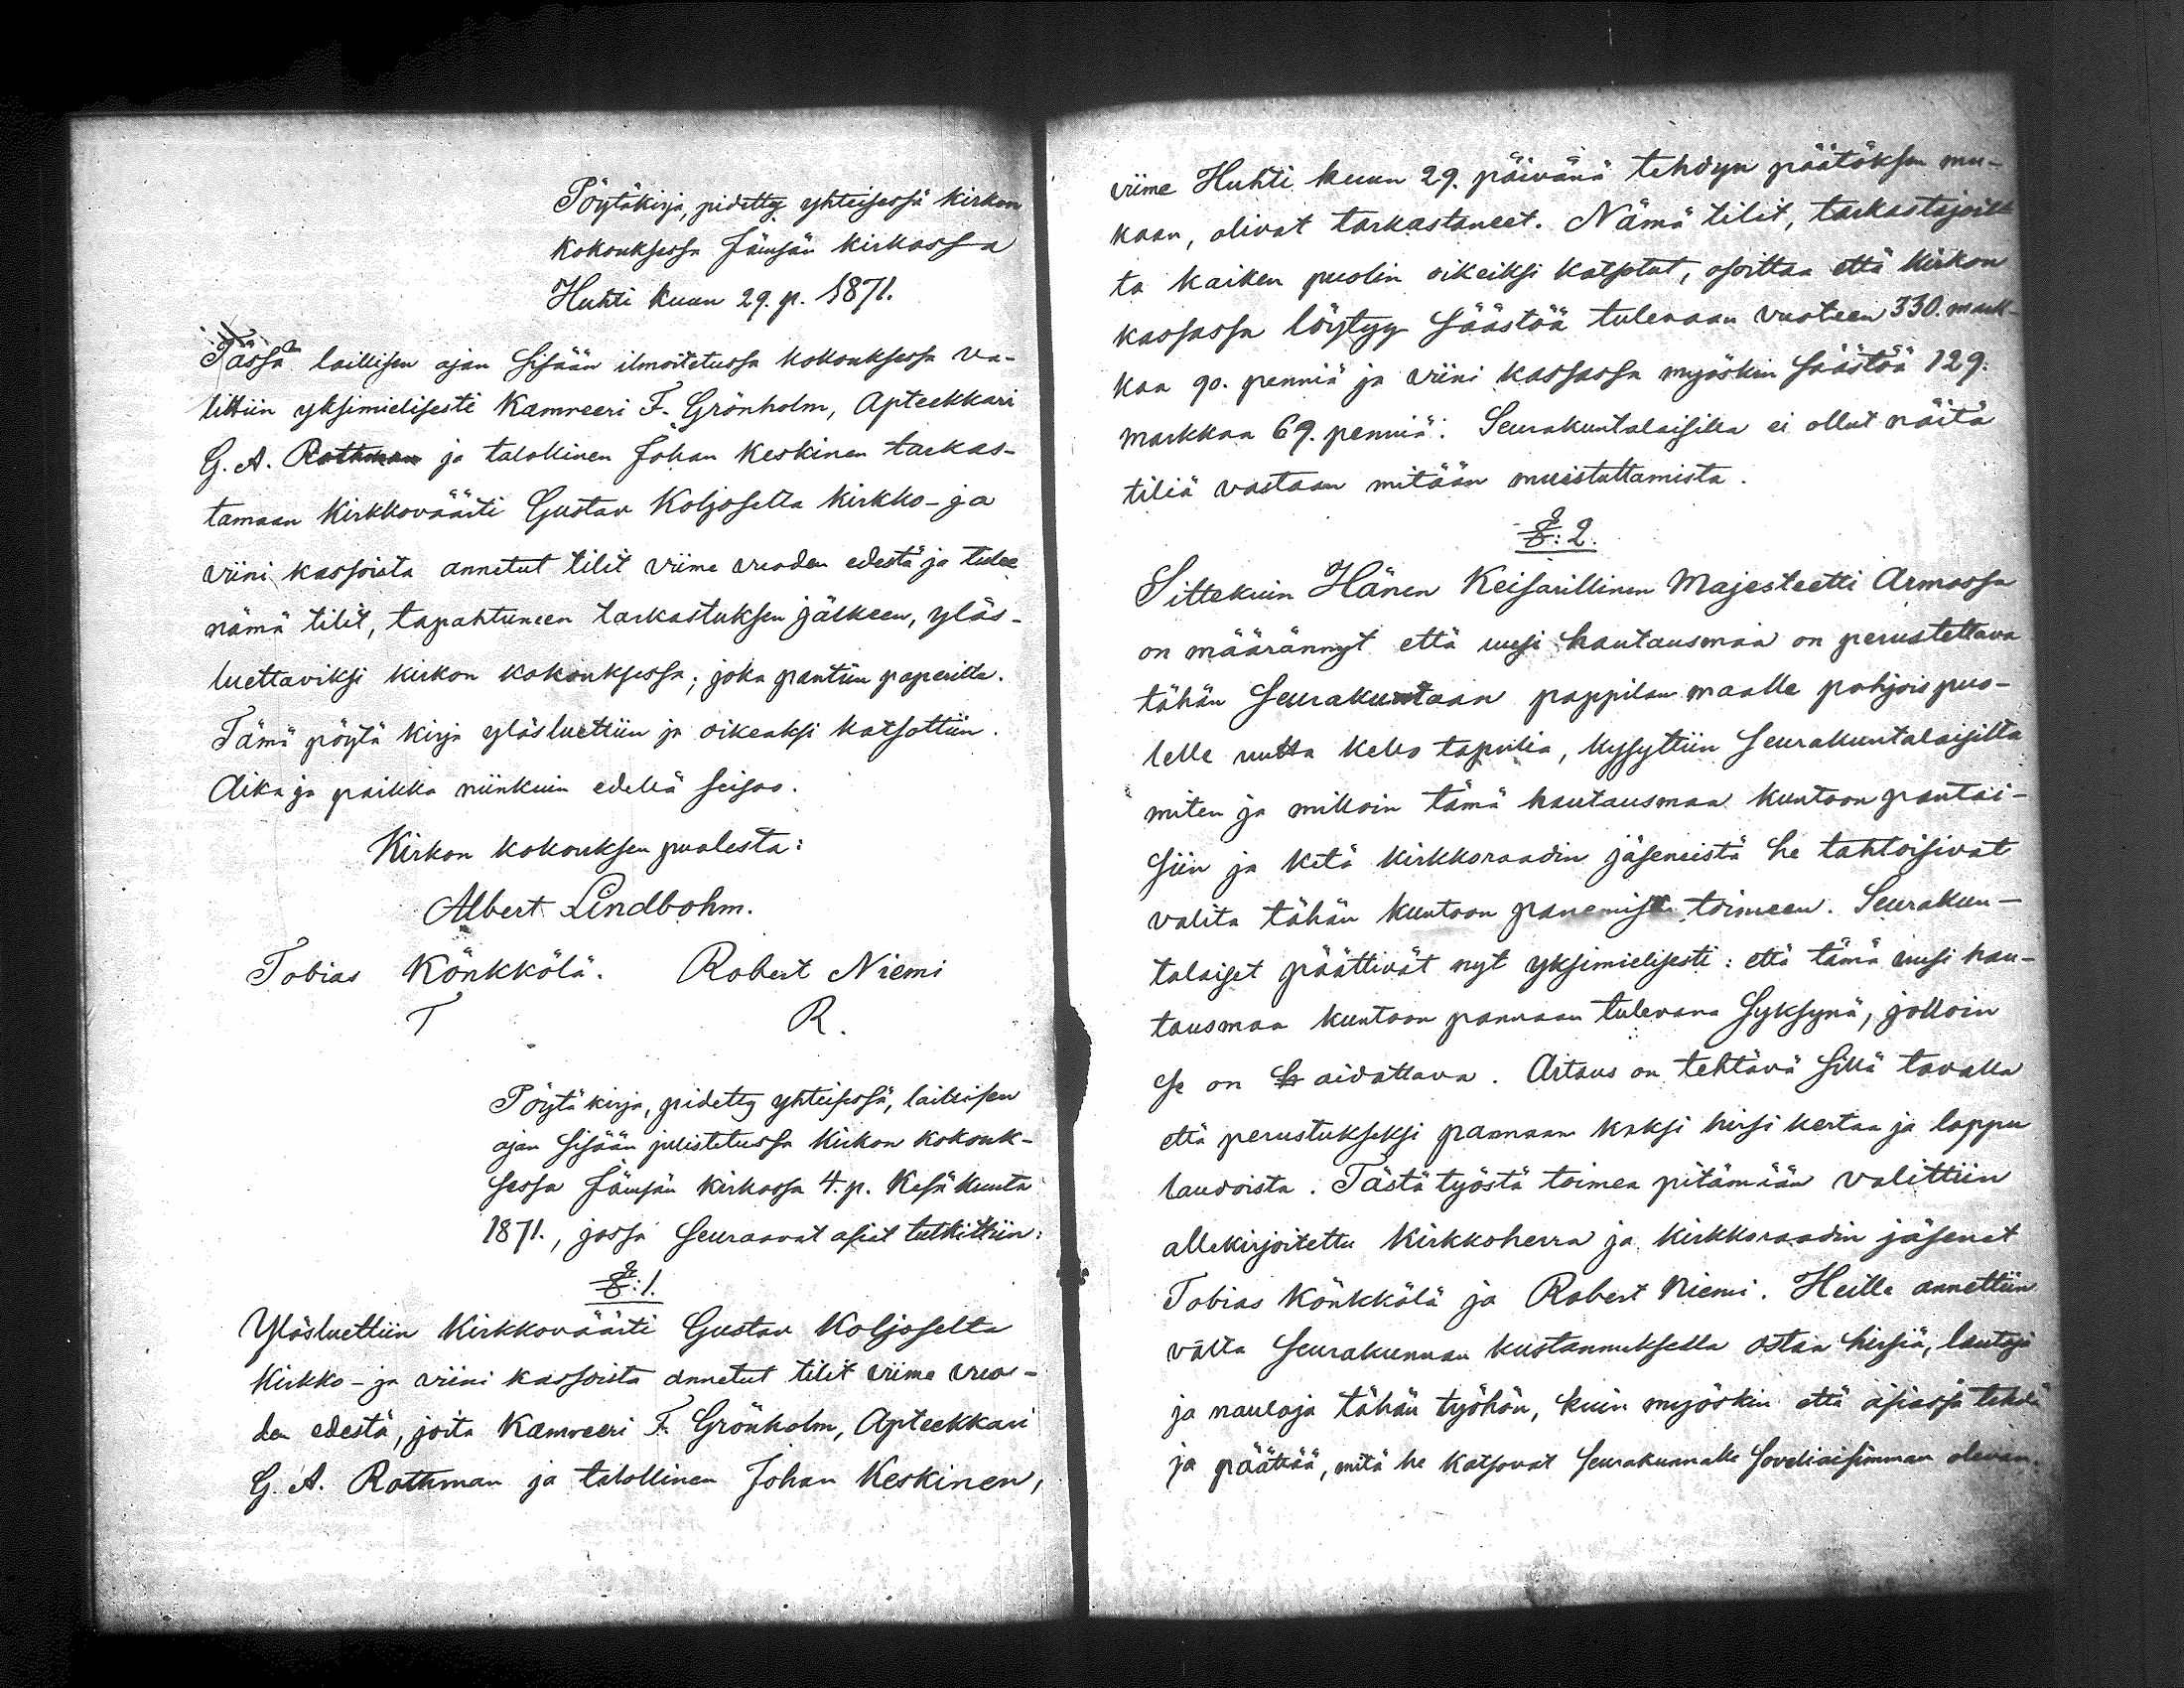 Pöytäkirja, pidetty yhteisessä kirkon
kokouksessa Jämsän kirkossa
Huhti kuun 29. p. 1871.
Tässä laillisen ajan sisään ilmoitetussa kokouksessa va-
littiin yksimielisesti Kamreeri F. Grönholm, Apteekkari
G. A. Rothman ja talollinen Johan Keskinen tarkas-
tamaan Kirkkoväärti Gustav Koljoselta kirkko- ja
viini kassoista annetut tilit viime vuoden edestä ja tulee
nämä tilit, tapahtuneen tarkastuksen jälkeen, yläs-
luettaviksi kirkon kokouksessa; joka pantiin paperille.
Tämä pöytä kirja ylösluettiin ja oikeaksi katsottiin.
Aika ja paikka niinkuin edellä seisoo.
Kirkon kokouksen puolesta:
Albert Lindbohm.
Tobias Könkkölä. Robert Niemi
T R.
Pöytäkirja, pidetty yhteisessä, laillisen
ajan sisään julistetussa kirkon kokouk-
sessa Jämsän kirkossa 4. p. Kesäkuuta
1871., jossa seuraavat asiat tutkittiin:
§: 1.
Ylösluettiin Kirkkoväärti Gustav Koljoselta
Kirkko- ja viini kassoista annetut tilit viime vuo-
den edestä, joita Kamreeri F. Grönholm, Apteekkari
G. A. Rothman ja talollinen Johan Keskinen,
viime Huhti kuun 29. päivänä tehdyn päätöksen mu-
kaan, olivat tarkastaneet. Nämä tilit, tarkastajoilta
ta kaiken puolin oikeiksi katsotut, osoittaa että kirkon
kassassa löytyy säästöä tulevaan vuoteen 330. mark-
kaa 90. penniä ja viini kassassa myöskin säästöä 129.
markkaa 69. penniä. Seurakuntalaisilla ei ollut näitä
tiliä vastaan mitään muistuttamista.
§: 2.
Sittekuin Hänen Keisarillinen Majesteetti Armossa
on määrännyt että uusi hautausmaa on perustettava
tähän seurakuntaan pappilan maalle pohjois puo-
lelle uutta kello tapulia, kysyttiin seurakuntalaisilta
miten ja milloin tämä hautausmaa kuntoon pantai-
siin ja ketä kirkkoraadin jäsenistä he tahtoisivat
valita tähän kuntoon panemisen toimeen. Seurakun-
talaiset päättivät nyt yksimielisesti: että tämä uusi hau-
tausmaa kuntoon pannaan tulevana syksynä, jolloin
se on aidattava. Aitaus on tehtävä sillä tavalla
että perustukseksi pannaan kaksi hirsi kertaa ja loppu
laudoista. Tästä työstä toimea pitämään valittiin
allekirjoitettu Kirkkoherra ja kirkkoraadin jäsenet
Tobias Könkkölä ja Robert Niemi. Heille annettiin
valta seurakunnan kustannuksella ostaa hirsiä, lautoja
ja nauloja tähän työhön, kuin myöskin että asiassa tehdä
ja päättää, mitä he katsovat seurakunnalle soveliaisimman olevan.